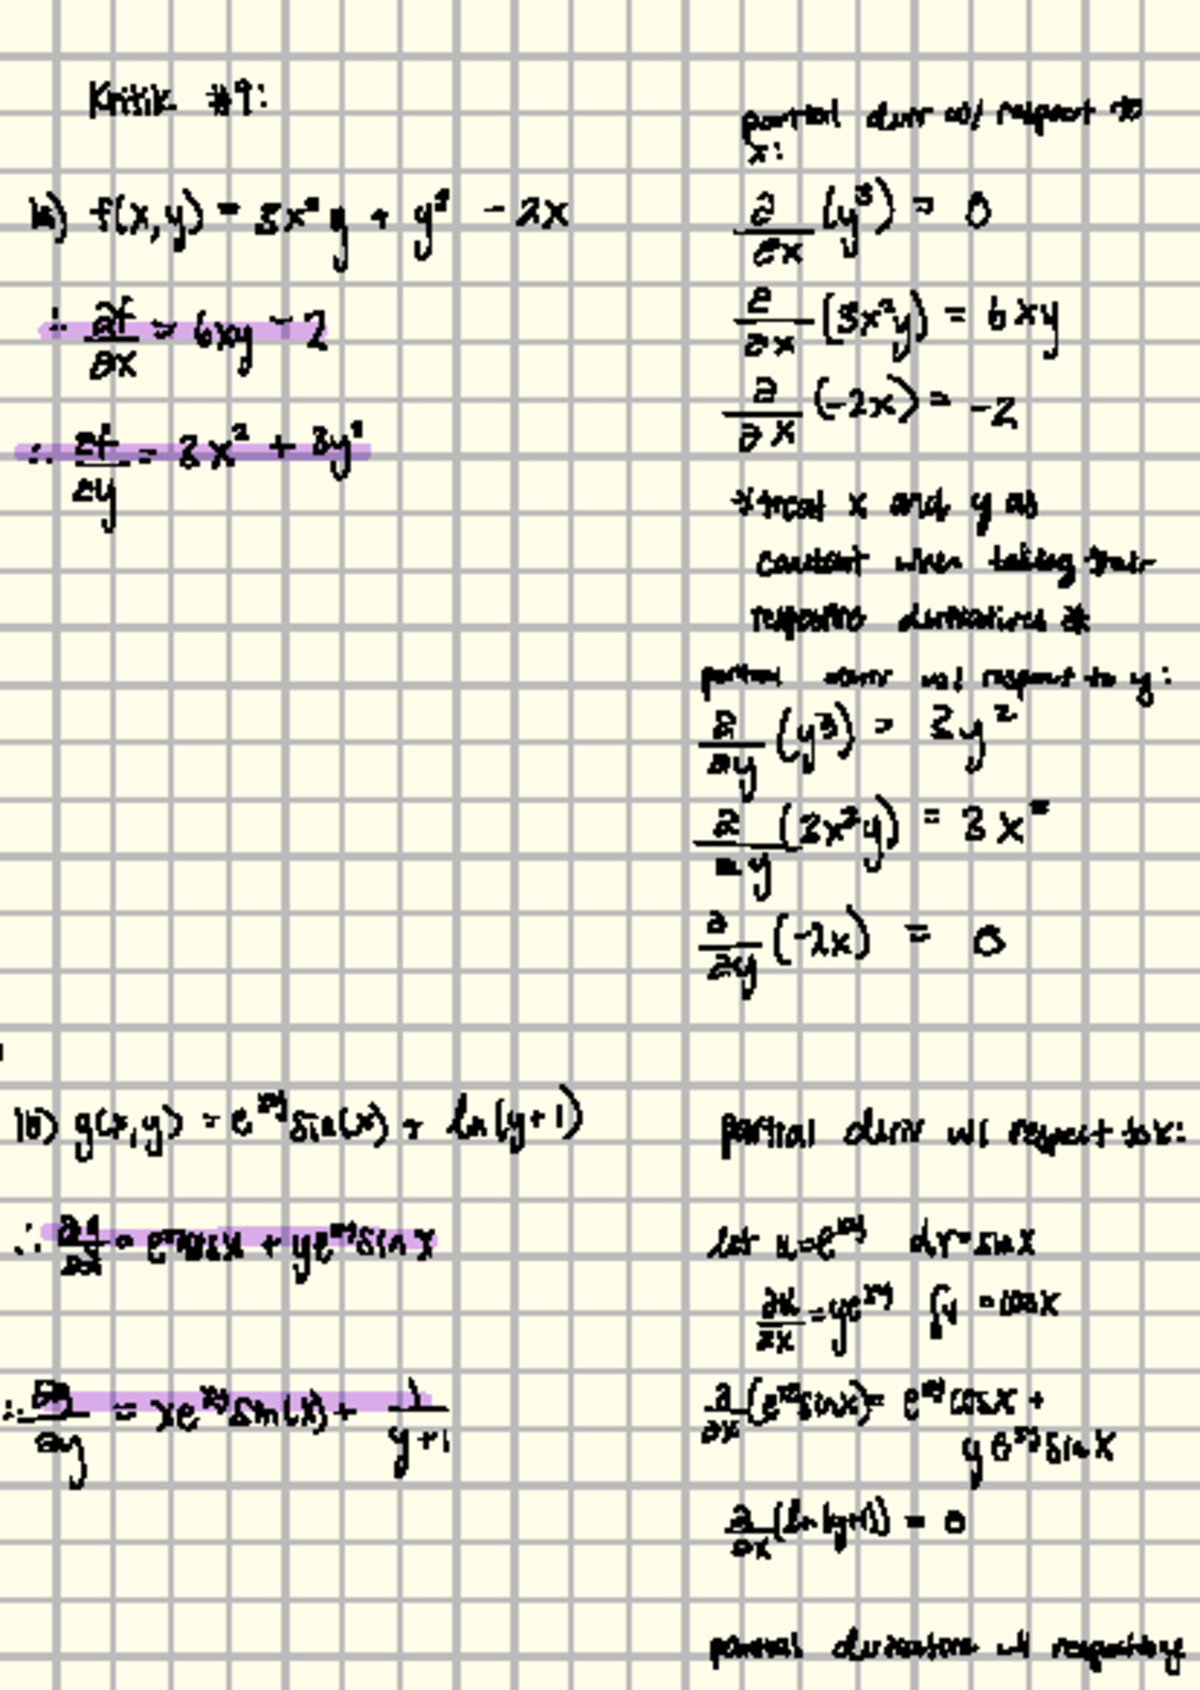 Kritik #9:
1a) f(x,y) = 3x²y + y³ - 2x
∴ ∂f/∂x = 6xy - 2
∴ ∂f/∂y = 3x² + 3y²
partial deriv w/ respect to
x:
∂/∂x (y³) = 0
∂/∂x (3x²y) = 6xy
∂/∂x (-2x) = -2
*treat x and y as
constant when taking their
respective derivatives *
partial deriv w/ respect to y:
∂/∂y (y³) = 3y²
∂/∂y (3x²y) = 3x²
∂/∂y (-2x) = 0
1b) g(x,y) = e^xy sin(x) + ln(y+1)
∴ ∂g/∂x = e^xy cosx + ye^xy sin x
∴ ∂g/∂y = xe^xy sin(x) + 1/y+1
partial deriv w/ respect to x:
let u=e^xy dv=sinx
∂u/∂x = ye^xy = cosx
∂/∂x (e^xy sinx) = e^xy cosx +
ye^xy sinx
∂/∂x (ln(y+1)) = 0
partial derivative w/ respect to y